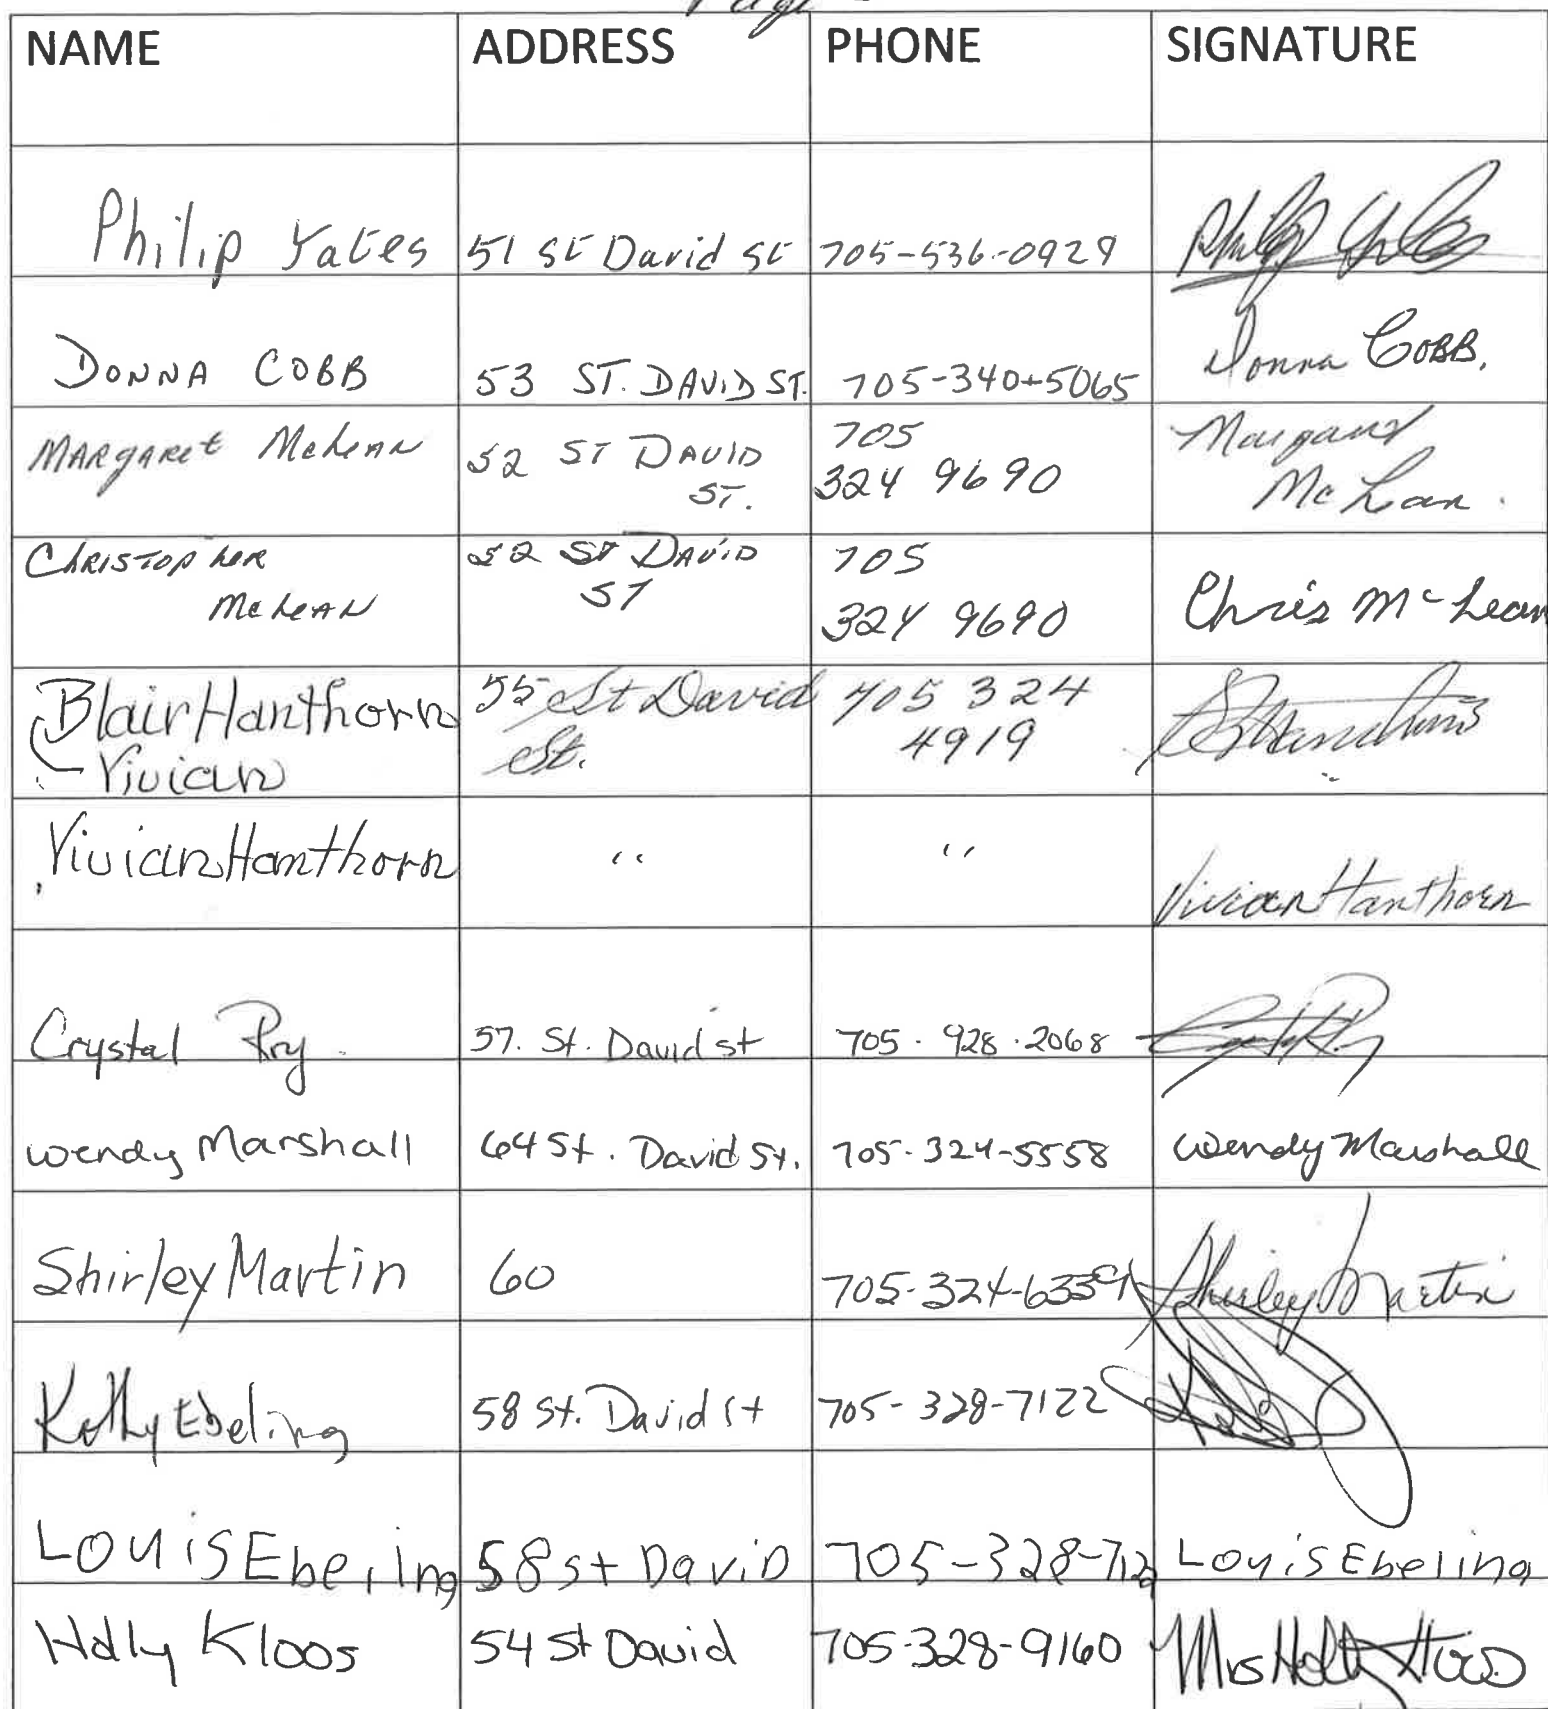 Page
NAME ADDRESS PHONE SIGNATURE
Philip Yates 51 St David St 705-536-0929 Philip Yates
DONNA COBB 53 ST. DAVID ST. 705-340-5065 Donna COBB.
MARGARET McLEAN 52 ST DAVID ST. 705 324 9690 Margaret McLean.
CHRISTOPHER McLEAN 52 ST DAVID ST 705 324 9690 Chris McLean
Blair Hanthorn 55 St David St. 705 324 4919
Vivian
Vivian Hanthorn " " Vivian Hanthorn
Crystal 57. St. David st 705. 928. 2068
Wendy Marshall 64 St. David St. 705-324-5558 Wendy Marshall
Shirley Martin 60 705-324-6339 Shirley Martin
Kathy Ebeling 58 St. David St 705-328-7122
Louis Ebeling 58 St David 705-328-712 Louis Ebeling
Holly Kloos 54 St David 705-328-9160 Mrs Holly